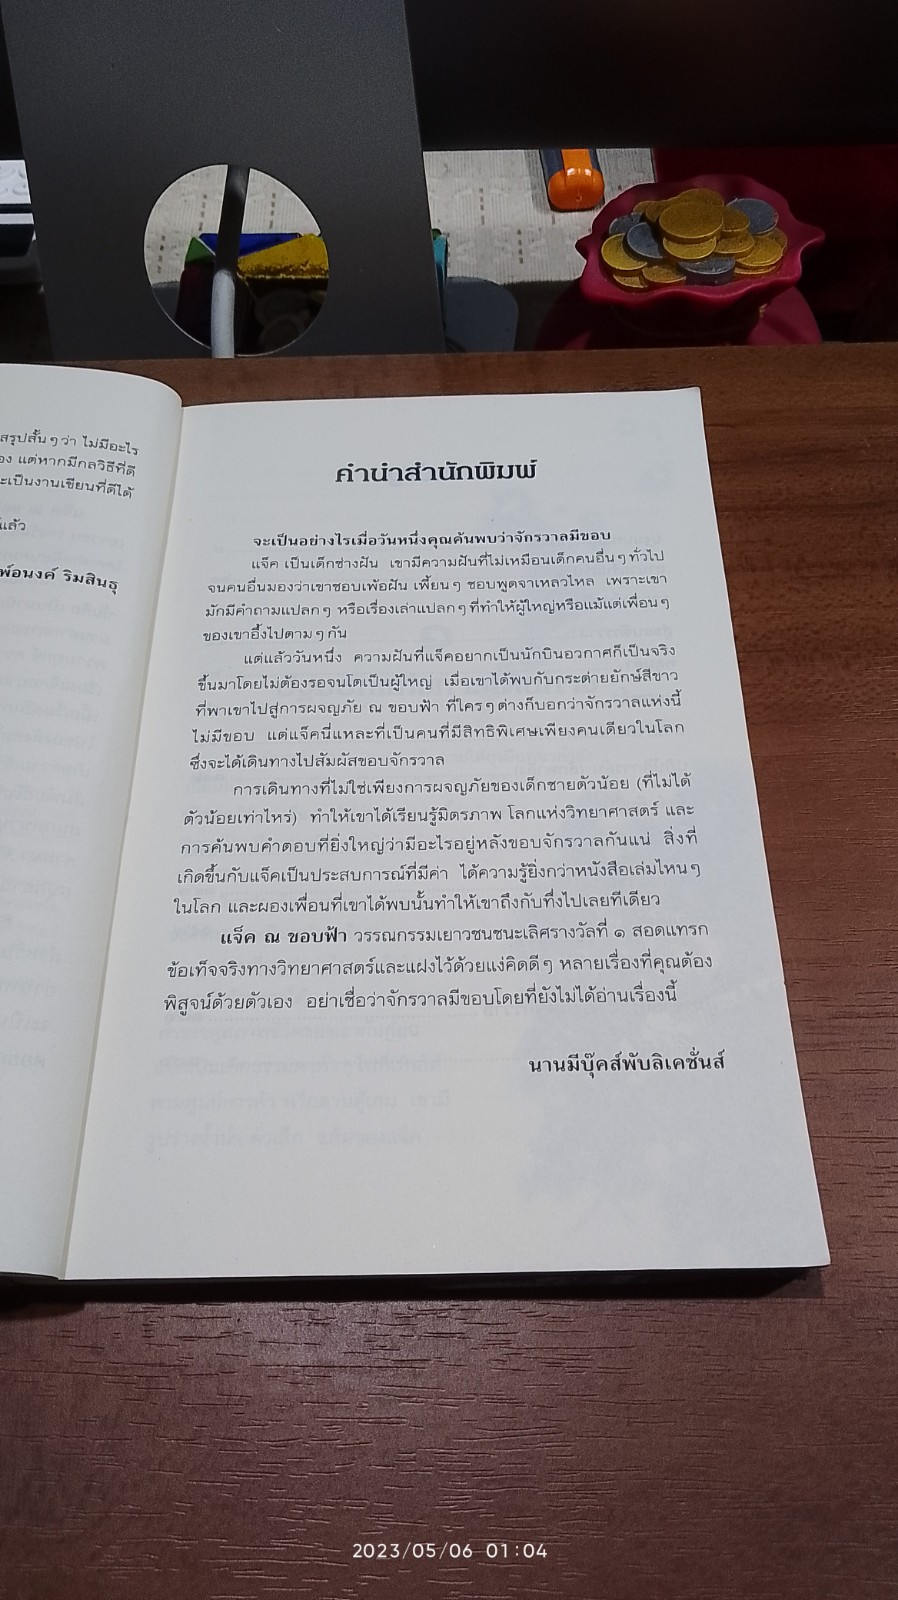 สรุปสั้นๆว่า ไม่มีอะไร
แต่หากมีกลวิธีที่ดี
เป็นงานเขียนที่ดีได้
แล้ว
ริมสินธุ
คำนำสำนักพิมพ์
จะเป็นอย่างไรเมื่อวันหนึ่งคุณค้นพบว่าจักรวาลมีขอบ
แจ็ค เป็นเด็กช่างฝัน เขามีความฝันที่ไม่เหมือนเด็กคนอื่นๆ ทั่วไป
จนคนอื่นมองว่าเขาชอบเพ้อฝัน เพี้ยนๆ ชอบพูดจาเหลวไหล เพราะเขา
มักมีคำถามแปลกๆ หรือเรื่องเล่าแปลกๆ ที่ทำให้ผู้ใหญ่หรือแม้แต่เพื่อนๆ
ของเขาอึ้งไปตามๆ กัน
แต่แล้ววันหนึ่ง ความฝันที่แจ็คอยากเป็นนักบินอวกาศก็เป็นจริง
ขึ้นมาโดยไม่ต้องรอจนโตเป็นผู้ใหญ่ เมื่อเขาได้พบกับกระต่ายยักษ์สีขาว
ที่พาเขาไปสู่การผจญภัย ณ ขอบฟ้า ที่ใครๆ ต่างก็บอกว่าจักรวาลแห่งนี้
ไม่มีขอบ แต่แจ็คนี่แหละที่เป็นคนที่มีสิทธิพิเศษเพียงคนเดียวในโลก
ซึ่งจะได้เดินทางไปสัมผัสขอบจักรวาล
การเดินทางที่ไม่ใช่เพียงการผจญภัยของเด็กชายตัวน้อย (ที่ไม่ได้
ตัวน้อยเท่าไหร่) ทำให้เขาได้เรียนรู้มิตรภาพ โลกแห่งวิทยาศาสตร์ และ
การค้นพบคำตอบที่ยิ่งใหญ่ว่ามีอะไรอยู่หลังขอบจักรวาลกันแน่ สิ่งที่
เกิดขึ้นกับแจ็คเป็นประสบการณ์ที่มีค่า ได้ความรู้ยิ่งกว่าหนังสือเล่มไหนๆ
ในโลก และผองเพื่อนที่เขาได้พบนั้นทำให้เขาถึงกับทึ่งไปเลยทีเดียว
แจ็ค ณ ขอบฟ้า วรรณกรรมเยาวชนชนะเลิศรางวัลที่ ๑ สอดแทรก
ข้อเท็จจริงทางวิทยาศาสตร์และแฝงไว้ด้วยแง่คิดดีๆ หลายเรื่องที่คุณต้อง
พิสูจน์ด้วยตัวเอง อย่าเชื่อว่าจักรวาลมีขอบโดยที่ยังไม่ได้อ่านเรื่องนี้
นานมีบุ๊คส์พับลิเคชั่นส์
2023/05/06 01:04